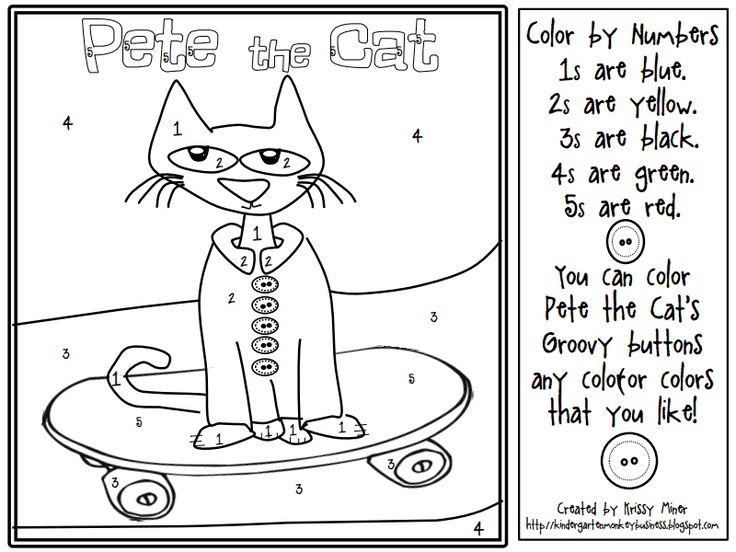 Pete the Cat
5 5 5 5 5 5
4
4
1
2
2
1
2 2
2
3
3
1
5
5
1 1 1 1
3
3
3
4
Color by Numbers
1s are blue.
2s are yellow.
3s are black.
4s are green.
5s are red.
You can color
Pete the Cat's
Groovy buttons
any color or colors
that you like!
Created by Krissy Miner
http://kindergartenmonkeybusiness.blogspot.com